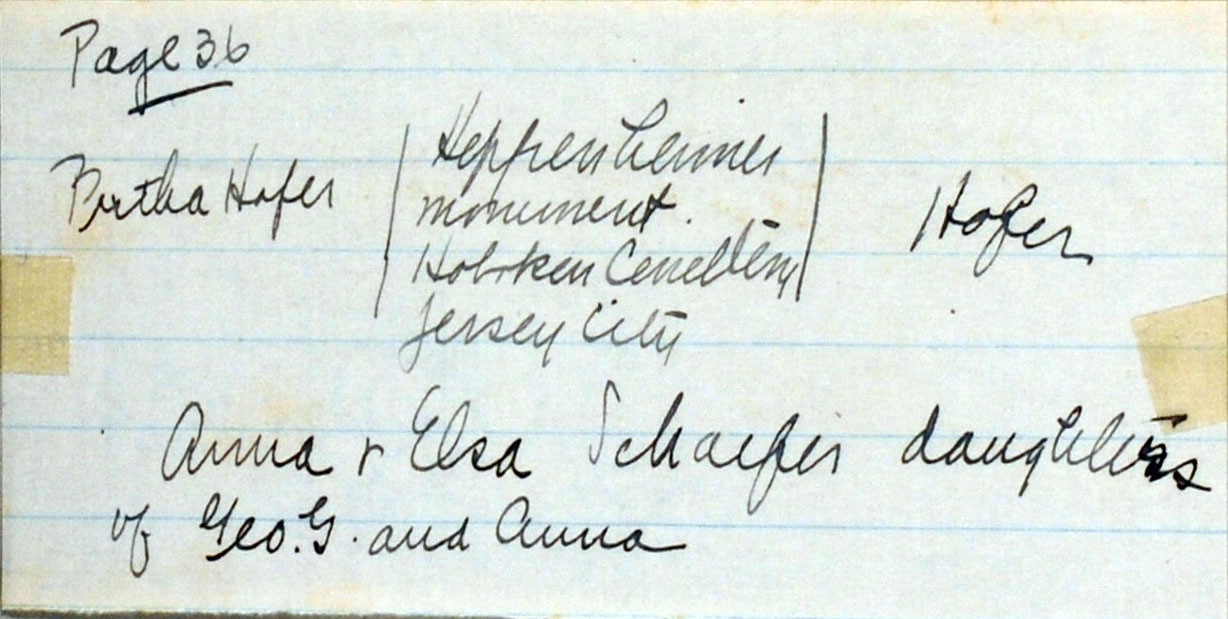 Page 36
Bertha Hofer | Heppenheimer | Hofer
monument.
Hoboken Cemetery
Jersey City
Anna & Elsa Schaefer daughters
of Geo. G. and Anna